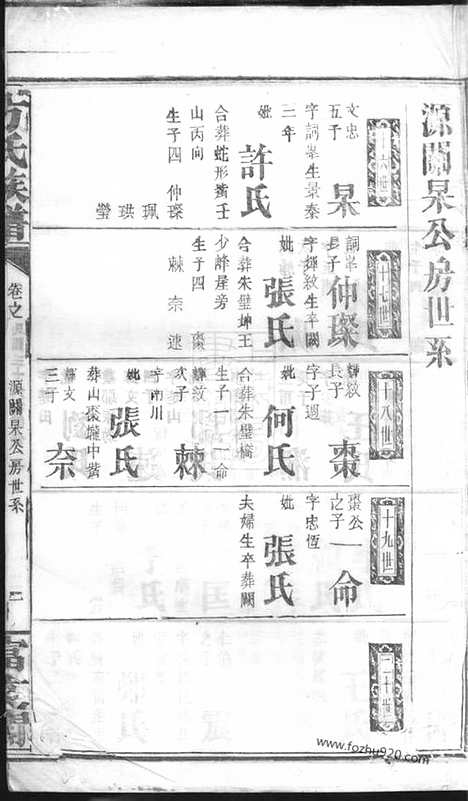 源關杲公房世系
十六世
文忠
五子
杲
字詞峯生景泰
三年
妣
許氏
合葬蛇形嘴壬
山丙向
生子四 仲璨
珮
珙
瑩
十七世
詞峯
長子
仲璨
字輝紋生卒闕
妣
張氏
合葬朱璧坤王
少峰屋旁
生子四 棗
棘 柰 速
十八世
輝紋
長子
棗
字子週
妣
何氏
合葬朱璧橋
生子一 一命
輝紋
次子
棘
字南川
妣
張氏
葬山棗壠中嘴
輝文
三子
柰
十九世
棗公
之子
一命
字忠恆
妣
張氏
夫婦生卒葬闕
二十世
方氏族譜
卷之
源關杲公房世系
一
www.fozhu920.com